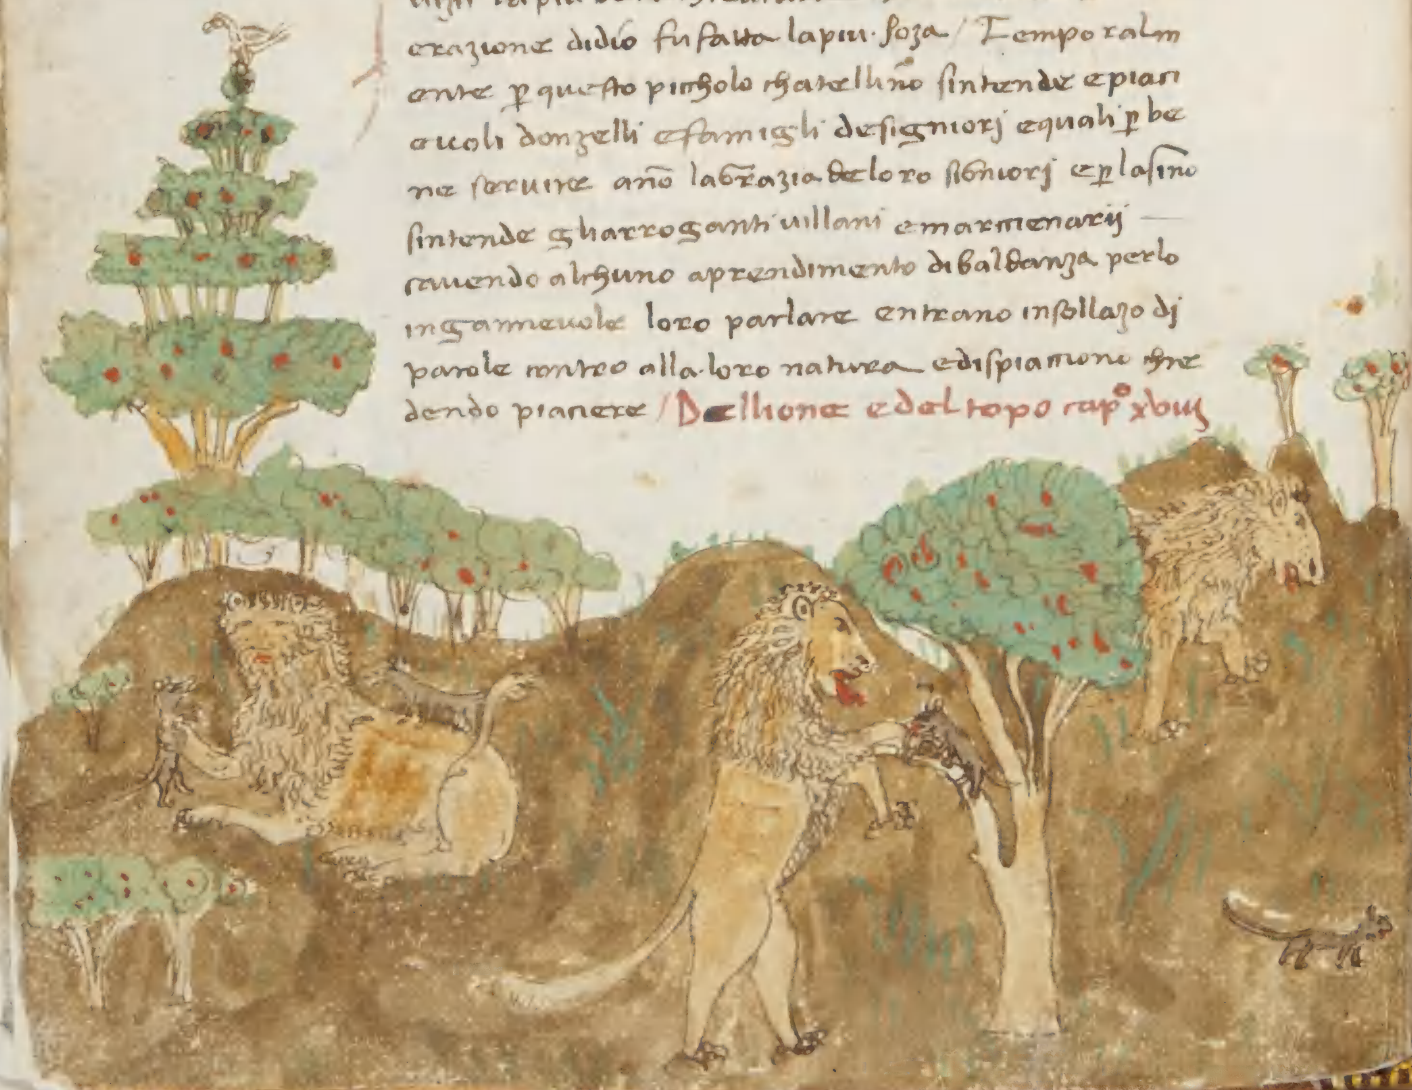 erazione didio fu fatta lapiu soza / Temporalm
ente p questo piccholo chatellino sintende epiaci
evoli donzelli efamigli designiorj equali p be
ne servire ano lagrazia deloro signiorj e p lasino
sintende gharroganti villani emarcienarij
cavendo alchuno aprendimento dibaldanza perlo
ingannevole loro parlare entrano insollazo dj
parole contro alla loro natura edispiaccione chre
dendo piaciere / Dellione edel topo capo xviij